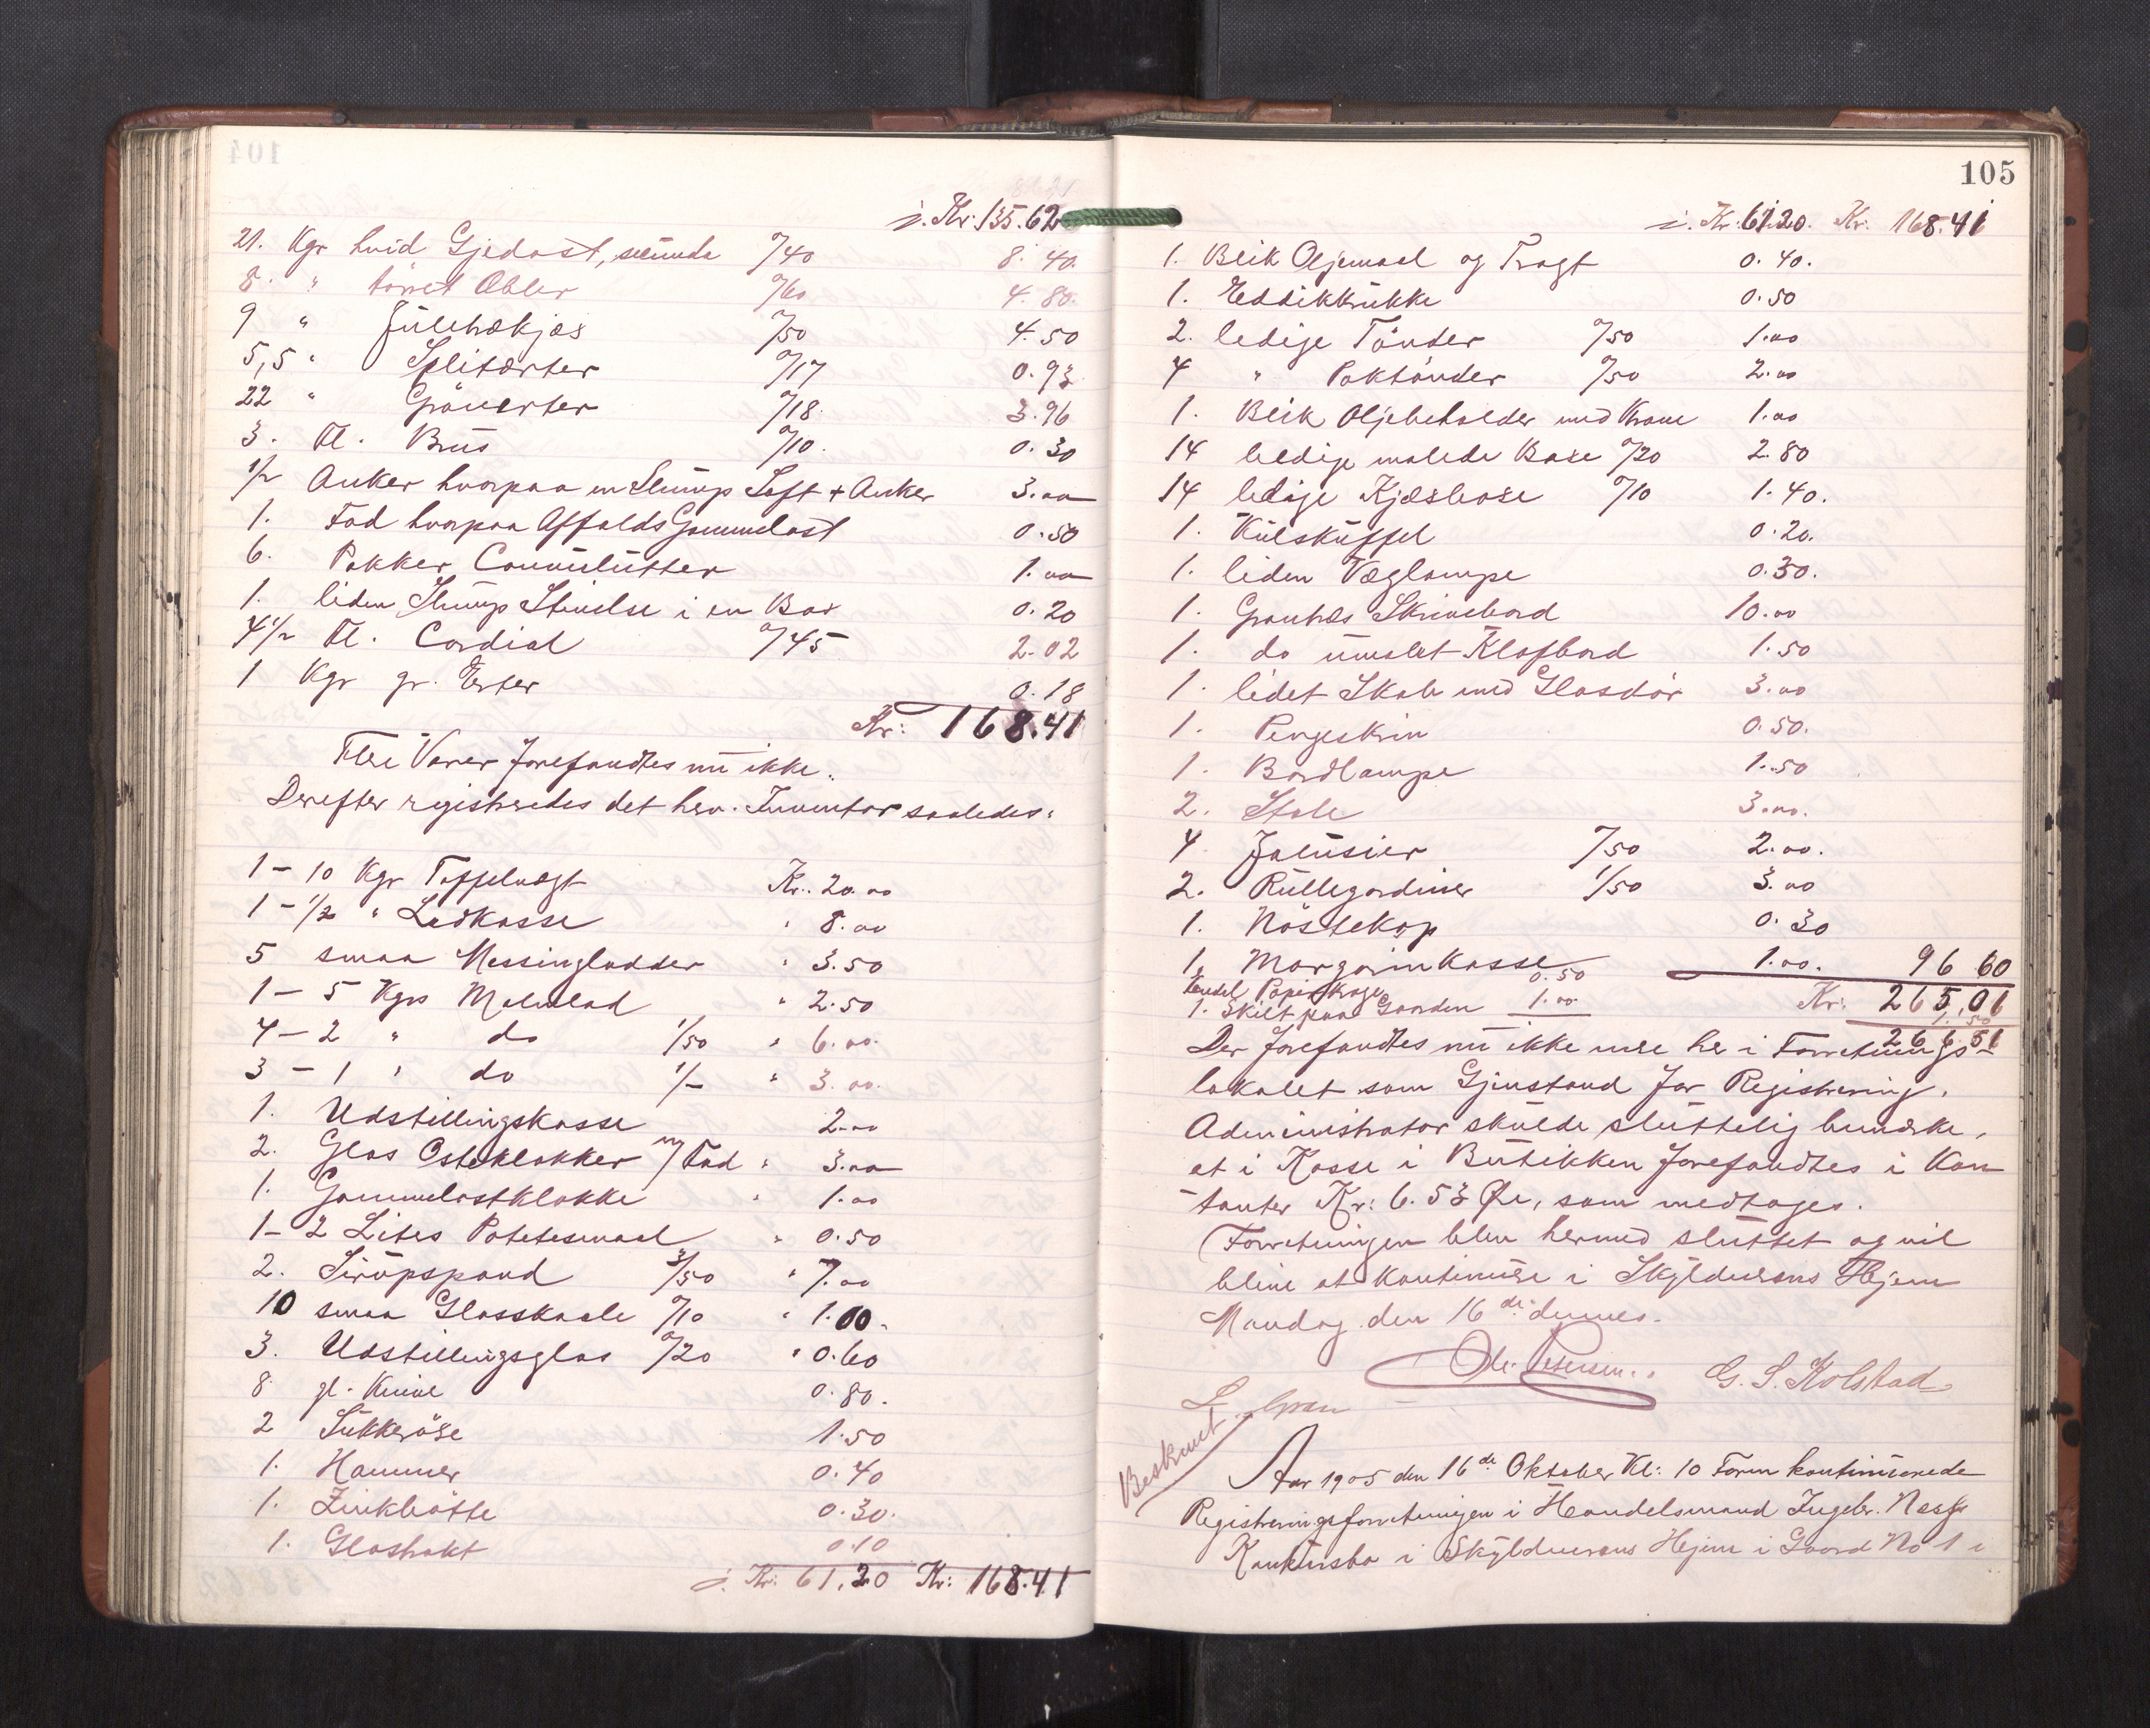 104
j. Kr: 135.62
21. Kgr hvid Gjedost, secunda %40 8. 40.
8. " törret Æbler %60 4. 80.
9 " Julehækjæs %50 4. 50
5,5 " Spliterter %17 0. 93
22 " Grönerter %18. 3. 96
3. Fl. Brus %10. 0. 30
1/2 Anker hvorpaa en Slump Saft + Anker 3.00
1. Fad hvorpaa Affalds Gammelost 0.50
6. Pakker 1.00
1. liden Slump Stivelse i en Box 0. 20
4 1/2 Fl. Cordial %45 2.02
1 Kgr gr. Erter 0. 18
Kr: 168.41
Flere Varer forefandtes nu ikke.
Derefter registreredes det herv. Inventar saaledes:
1 – 10 Kgr Taffelvægt Kr. 20.00
1 – 1/2 " Lodkasse " 8.00
5 smaa Messinglodder " 3.50
1 – 5 Kgrs Malmlod " 2.50
4 – 2 " do 1/50 " 6.00.
3 – 1 " do 1/– " 3.00.
1. Udstillingskasse 2.00
2. Glas Osteklokker m/Fad " 3.00
1. Gammelostklokke " 1.00
1 – 2 Liters Potetesmaal " 0.50
2. Sirupspand 3/50 " 7.00
10 smaa Glasskaale %10 " 1.00.
3. Udstillingsglas %20 " 0.60
8 gl. Knive 0.80.
2 Sukkeröse 1.50
1. Hammer 0.40
1. Zinkbötte 0.30.
1. Glastrakt 0.10
j. Kr: 61,20 Kr: 168.41
105
j. Kr: 61.20. Kr. 168.41
1. Blik Oljemaal og Tragt 0. 40.
1. Eddikkrukke 0.50
2. ledige Tönder %50 1.00
4 " Paktönder %50 2.00
1. Blik Oljebeholder med Krane 1.00
14 ledige malede Baxe %20 2.80
14 ledige Kjæsbaxe %10 1.40.
1. Kulskuffel 0.20.
1. liden Væglampe 0.30.
1. Grantræs Skrivebord 10.00
1. do umalet Klafbord 1.50
1. lidet Skab med Glasdör 3.00
1. Pengeskrin 0.50.
1. Bordlampe 1.50
2. Stole 3.00.
4 Jalusier %50 2.00.
2. Rullegardiner 1/50 3.00
1. Nöstekop 0.30
1. Margarinkasse 1.00. 96 60
Endel Papir 0.50
1. Skilt paa Gaarden 1.00. Kr: 265,01
1.50
266.51
Der forefandtes nu ikke mere her i Forretnings-
lokalet som Gjenstand for Registrering.
Administrator skulde sluttelig bemærke,
at i Kasse i Butikken forefandtes i Kon
tanter Kr: 6.53 Øre, som medtages.
Forretningen blev hermed sluttet og vil
blive at kontinuere i Skyldnerens Hjem
Mandag den 16de dennes.
Ole Petersen. G. S. Kolstad
L. Gran
Beskrevet
Aar 1905 den 16de Oktober Kl: 10 Form kontinuerede
Registreringsforretningen i Handelsmand Ingebr. Næss
Konkursbo i Skyldnerens Hjem i Gaard No 1 i